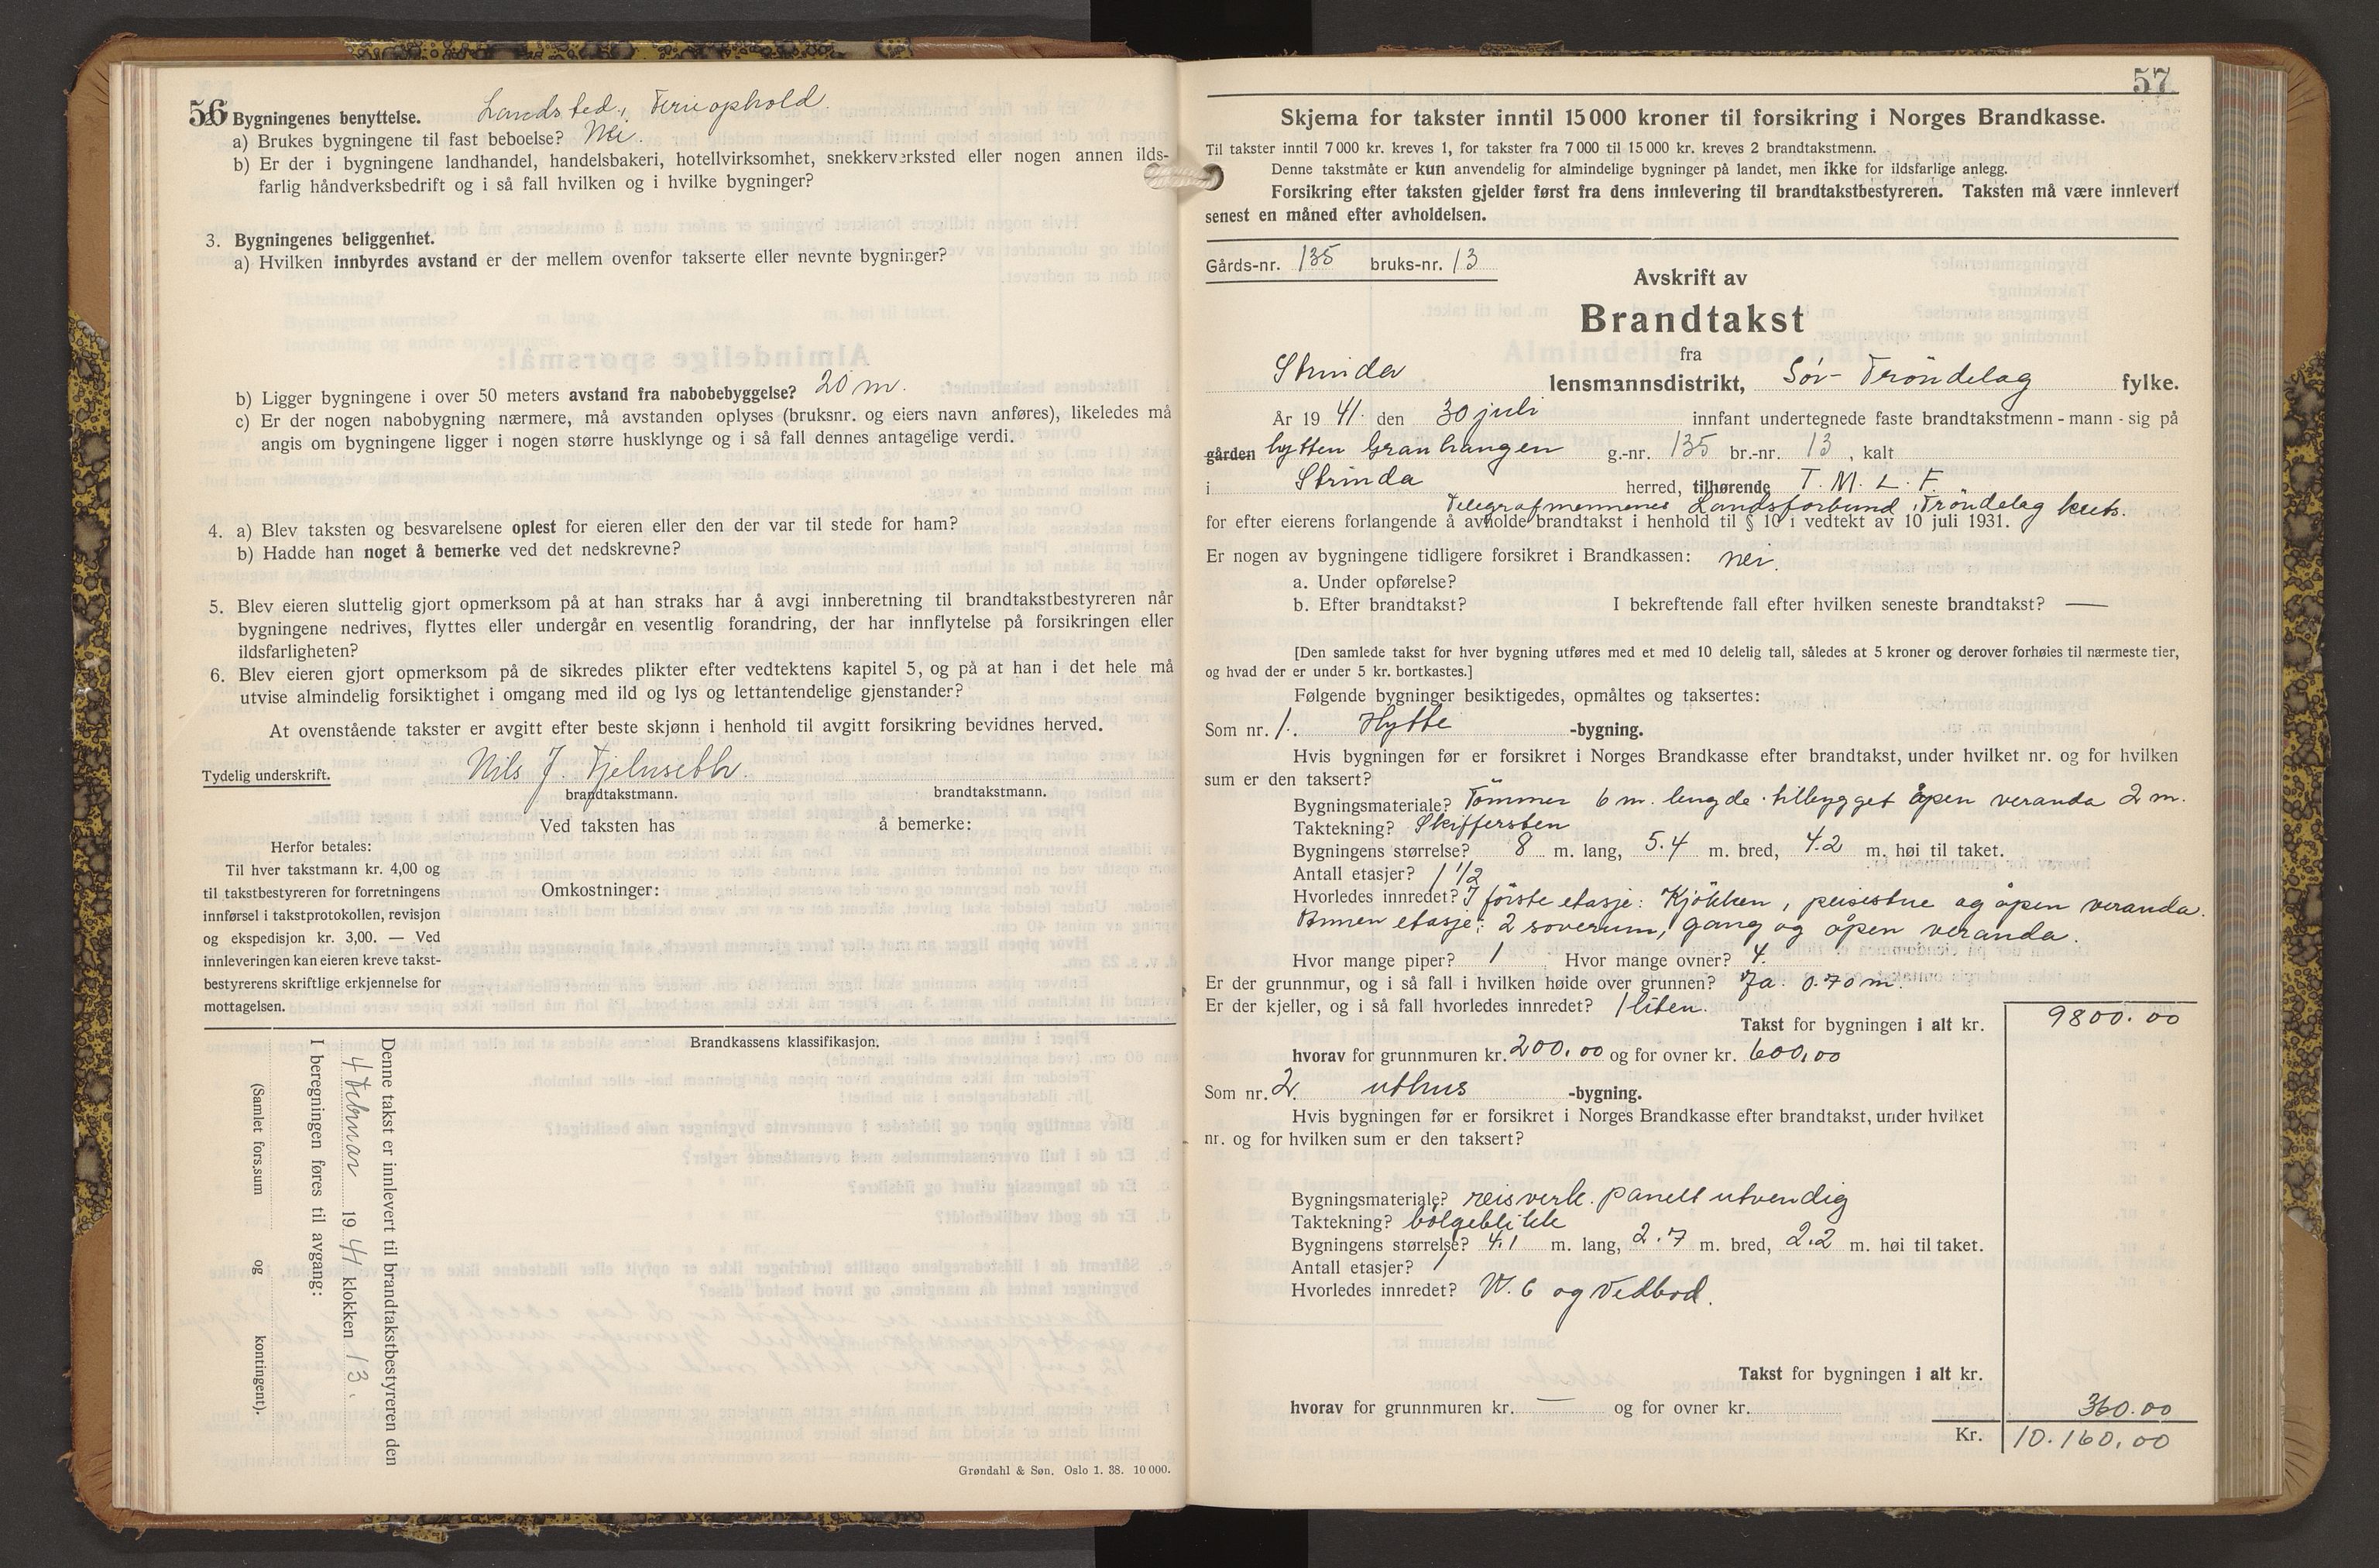 56
Landsted, Ferieophold.
2. Bygningenes benyttelse.
a) Brukes bygningene til fast beboelse? Nei.
b) Er der i bygningene landhandel, handelsbakeri, hotellvirksomhet, snekkerverksted eller nogen annen ilds-
farlig håndverksbedrift og i så fall hvilken og i hvilke bygninger?
3. Bygningenes beliggenhet.
a) Hvilken innbyrdes avstand er der mellem ovenfor takserte eller nevnte bygninger?
b) Ligger bygningene i over 50 meters avstand fra nabobebyggelse? 20 m.
c) Er der nogen nabobygning nærmere, må avstanden oplyses (bruksnr. og eiers navn anføres), likeledes må
angis om bygningene ligger i nogen større husklynge og i så fall dennes antagelige verdi.
4. a) Blev taksten og besvarelsene oplest for eieren eller den der var til stede for ham?
b) Hadde han noget å bemerke ved det nedskrevne?
5. Blev eieren sluttelig gjort opmerksom på at han straks har å avgi innberetning til brandtakstbestyreren når
bygningene nedrives, flyttes eller undergår en vesentlig forandring, der har innflytelse på forsikringen eller
ildsfarligheten?
6. Blev eieren gjort opmerksom på de sikredes plikter efter vedtektens kapitel 5, og på at han i det hele må
utvise almindelig forsiktighet i omgang med ild og lys og lettantendelige gjenstander?
At ovenstående takster er avgitt efter beste skjønn i henhold til avgitt forsikring bevidnes herved.
Tydelig underskrift. Nils J. Fjelnseth.
brandtakstmann. brandtakstmann.
Ved taksten has å bemerke:
Herfor betales:
Til hver takstmann kr. 4,00 og
til takstbestyreren for forretningens
innførsel i takstprotokollen, revisjon
og ekspedisjon kr. 3,00. — Ved
innleveringen kan eieren kreve takst-
bestyrerens skriftlige erkjennelse for
mottagelsen.
Omkostninger:
Brandkassens klassifikasjon.
Denne takst er innlevert til brandtakstbestyreren den
4 Februar 19 41 klokken 13.
I beregningen føres til avgang:
(Samlet fors.sum og kontingent).
Grøndahl & Søn, Oslo 1. 38. 10 000.
57
Skjema for takster inntil 15 000 kroner til forsikring i Norges Brandkasse.
Til takster inntil 7 000 kr. kreves 1, for takster fra 7 000 til 15 000 kr. kreves 2 brandtakstmenn.
Denne takstmåte er kun anvendelig for almindelige bygninger på landet, men ikke for ildsfarlige anlegg.
Forsikring efter taksten gjelder først fra dens innlevering til brandtakstbestyreren. Taksten må være innlevert
senest en måned efter avholdelsen.
Gårds-nr. 135 bruks-nr. 13
Avskrift av
Brandtakst
fra
Strinda lensmannsdistrikt, Sör-Tröndelag fylke.
År 19 41. den 30 juli innfant undertegnede faste brandtakstmenn - mann - sig på
gården hytten Granhaugen g.-nr. 135 br.-nr. 13, kalt
i Strinda herred, tilhørende T. M. L. F.
Telegrafmennenes Landsforbund, Tröndelag krets.
for efter eierens forlangende å avholde brandtakst i henhold til § 10 i vedtekt av 10 juli 1931.
Er nogen av bygningene tidligere forsikret i Brandkassen: nei.
a. Under opførelse?
b. Efter brandtakst? I bekreftende fall efter hvilken seneste brandtakst? —
[Den samlede takst for hver bygning utføres med et med 10 delelig tall, således at 5 kroner og derover forhøies til nærmeste tier,
og hvad der er under 5 kr. bortkastes.]
Følgende bygninger besiktigedes, opmåltes og taksertes:
Som nr. 1. Hytte -bygning.
Hvis bygningen før er forsikret i Norges Brandkasse efter brandtakst, under hvilket nr. og for hvilken
sum er den taksert?
Bygningsmateriale? Tömmer 6 m. lengde. tilbygget åpen veranda 2 m.
Taktekning? Skiffersten
Bygningens størrelse? 8 m. lang, 5.4 m. bred, 4.2 m. høi til taket.
Antall etasjer? 1 1/2
Hvorledes innredet? I förste etasje: Kjökken, peisestue og åpen veranda.
Annen etasje: 2 soverum, gang og åpen veranda.
Hvor mange piper? 1 Hvor mange ovner? 4.
Er der grunnmur, og i så fall i hvilken høide over grunnen? Ja. 0.70 m.
Er der kjeller, og i så fall hvorledes innredet? 1 liten.
Takst for bygningen i alt kr. 9800.00
hvorav for grunnmuren kr. 200.00 og for ovner kr. 600,00
Som nr. 2. uthus -bygning.
Hvis bygningen før er forsikret i Norges Brandkasse efter brandtakst, under hvilket
nr. og for hvilken sum er den taksert?
Bygningsmateriale? reisverk. panelt utvendig
Taktekning? bölgeblikk
Bygningens størrelse? 4.1 m. lang, 2.7 m. bred, 2.2 m. høi til taket.
Antall etasjer? 1
Hvorledes innredet? W. C og Vedbod.
Takst for bygningen i alt kr.
hvorav for grunnmuren kr. — og for ovner kr. 360.00
Kr. 10.160,00